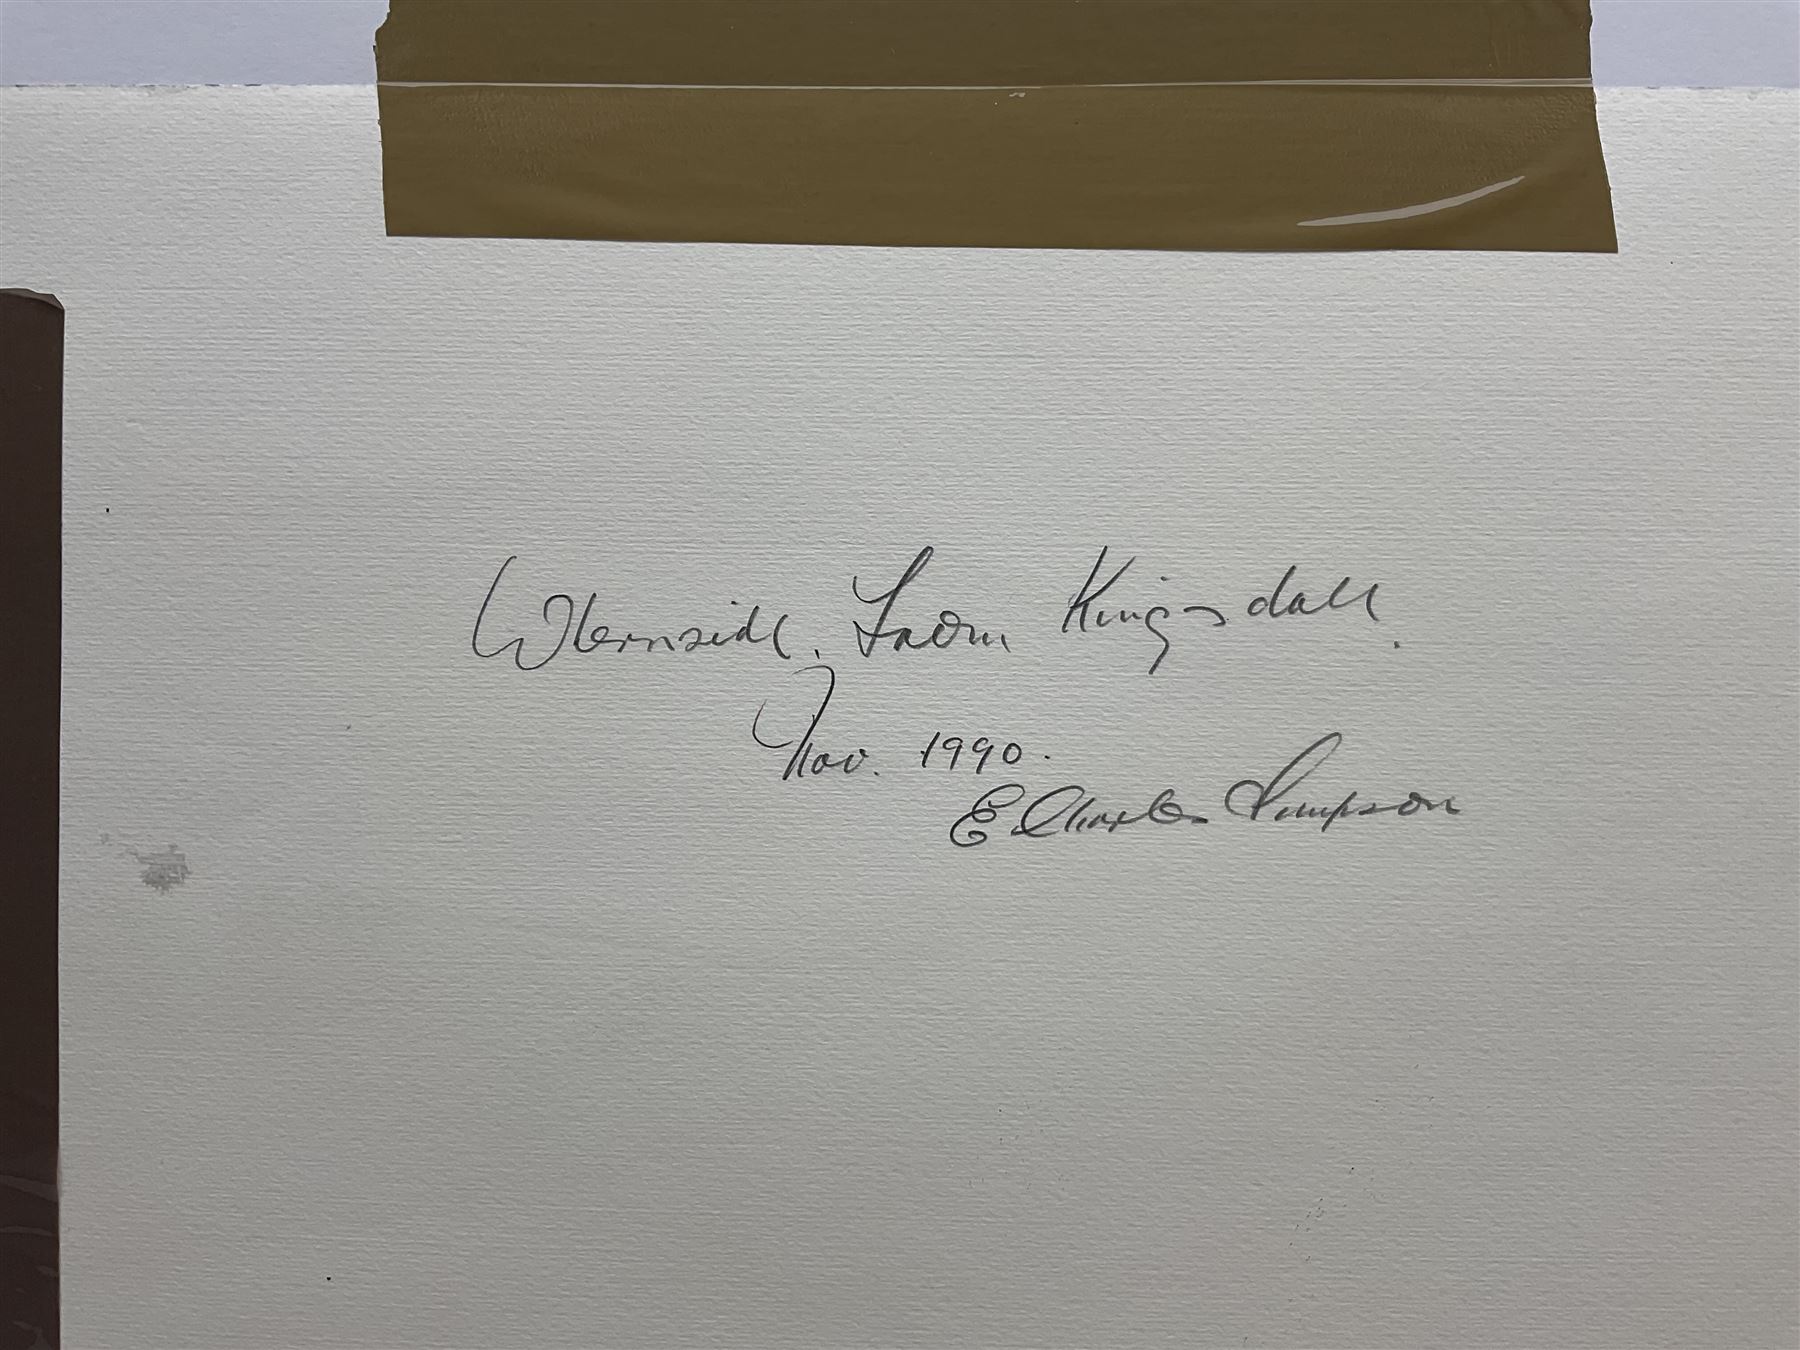 Whernside. From Kingsdale.
Nov. 1990.
E. Charles Simpson